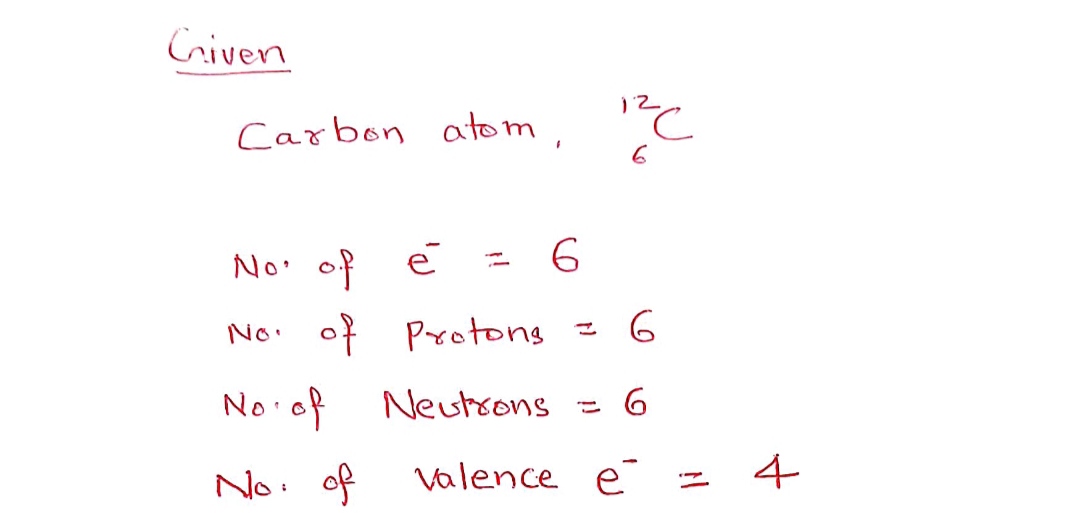 Given
Carbon atom, ¹²₆C
No. of e⁻ = 6
No. of Protons = 6
No. of Neutrons = 6
No. of Valence e⁻ = 4